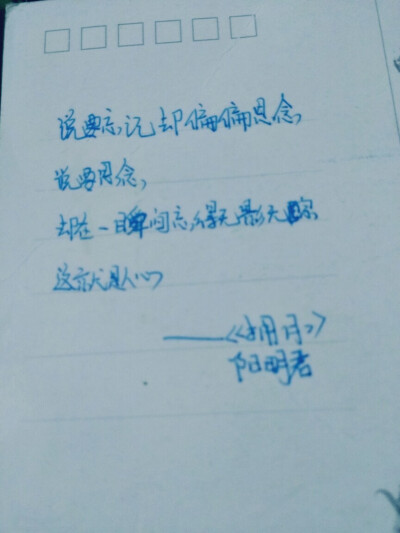 说要忘记却偏偏思念，
说要思念，
却在一瞬间忘得无影无踪
这就是人心
——《拥月》
阳明君